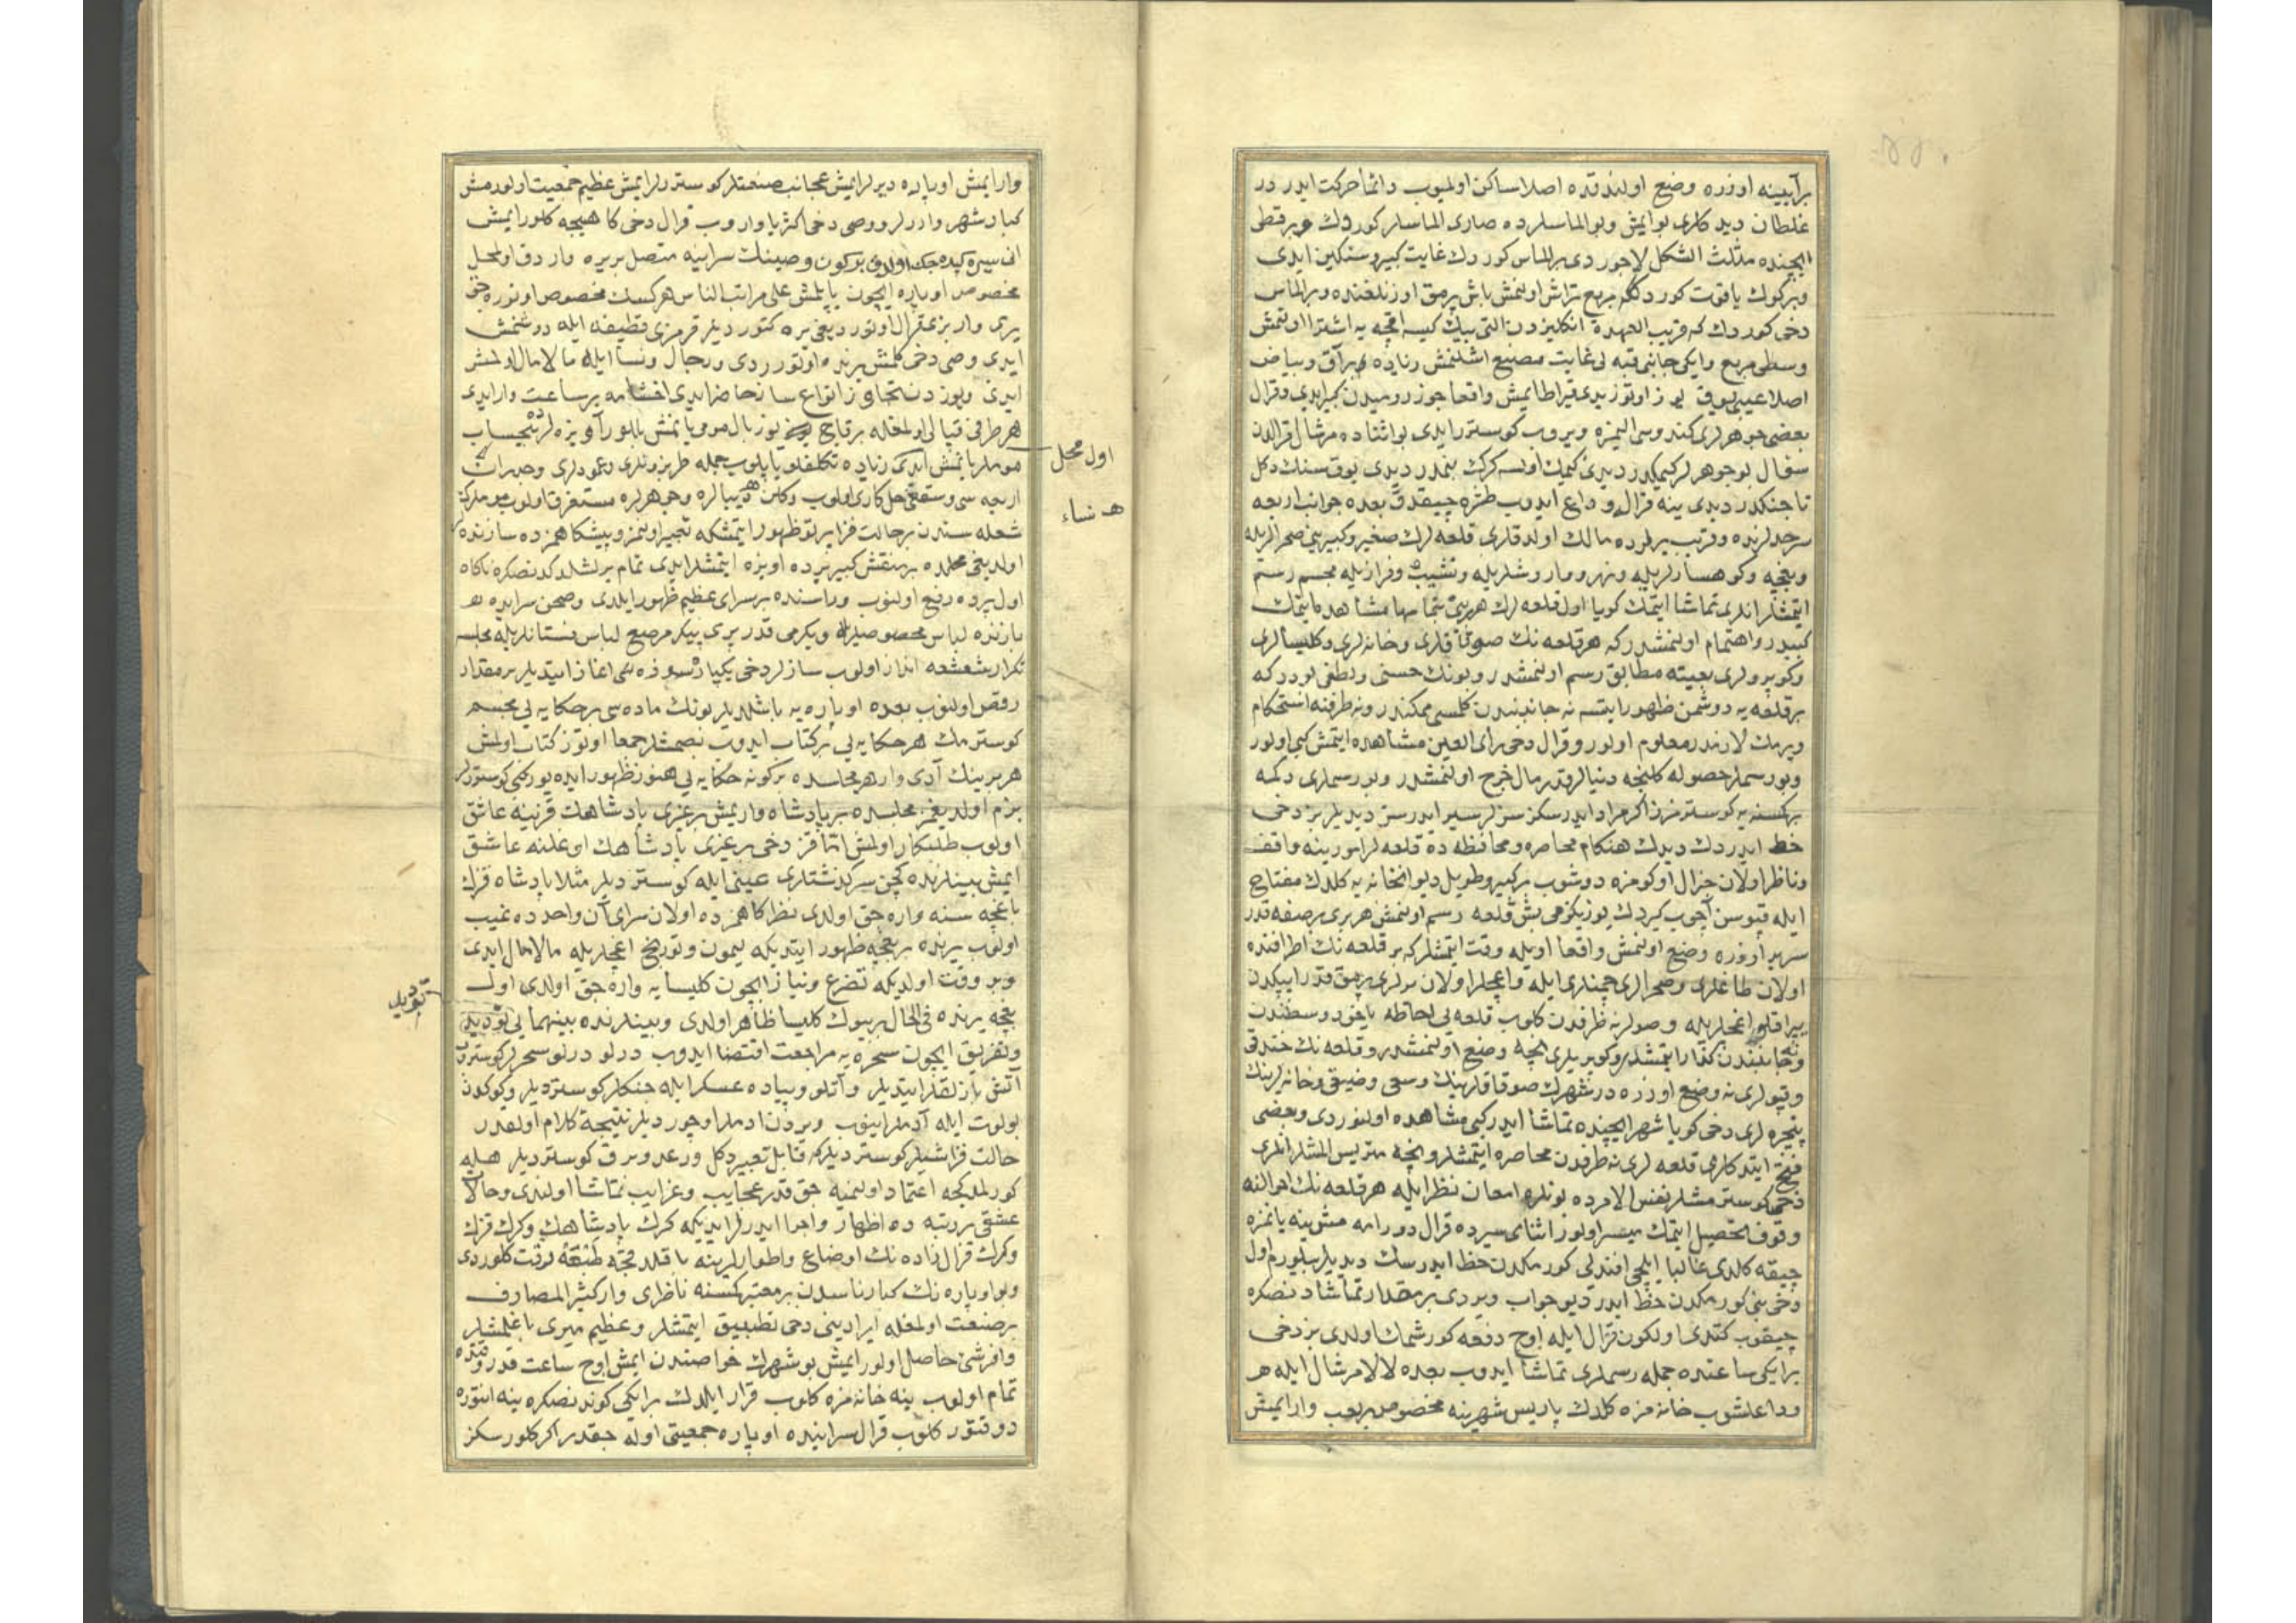 بر آیینه اوزره وضع اولندقده اصلا ساکن اولمیوب دائما حرکت ایدر در
غلطان دید کلری بو ایمش وبو الماسلرده صاری الماسلر کوردك وبر قطی
ایچنده مثلث الشکل لاجوردی بر الماس کوردك غایت کبیر وسنکین ایدی
وبر کوك یاقوت کوردك مربع تراش اولنمش باش پرمق اوزنلغنده وبر الماس
دخی کوردك که قریب العهده انکلیزدن التی بیك کیسه اقچه یه اشترا اولنمش
وسطی مربع وایکی جانبی قبه لی غایت مصنع اشلنمش زیاده براق وبیاض
اصلا عیبی یوق یوز اوتوز یدی قیراط ایمش واقعا جوز رومیدن کبیر ایدی وقرال
بعضی جوهرلری کندوسی الیمزه ویروب کوسترر ایدی بو اثناده مرشال قرالدن
سؤال بو جوهرلر کیمکدر دیدی کیمك اولسه کرك بنمدر دیدی یوق سنك دکل
تاجنکدر دیدی ینه قرال وداع ایدوب طشره چیقدق بعده جوانب اربعه
سرحدلرنده وقریب یرلرده مالك اولدقلری قلعه لرك صغیر وکبیرینی صحرالریله
وبغچه وکوهسارلریله ونهر ومار وشلریله ونشیب وفرازیله مجسم رسم
ایتمشلر انلری تماشا ایتمك کویا اول قلعه لرك هر برینی تمامها مشاهده ایتمك
کبیدر واهتمام اولنمشدر که هر قلعه نك صوقاقلری وخانه لری وکلیسالری
وکوپرولری بعینه مطابق رسم اولنمشدر وبونك حسنی ولطفی بودر که
بر قلعه یه دوشمن ظهور ایتسه نه جانبندن کلمسی ممکندر ونه طرفنه استحکام
ویرمك لازمدر معلوم اولور وقرال دخی رأی العین مشاهده ایتمش کبی اولور
وبو رسملر حصوله کلنجه دنیالر قدر مال خرج اولنمشدر وبو رسملری دکمه
بر کسنه یه کوسترمز اکر مراد ایدرسکز سزلر سیر ایدرسز دیدیلر بز دخی
حظ ایدردك دیدك هنکام محاصره ومحافظه ده قلعه لر امورینه واقف
وناظر اولان جنرال اوکومزه دوشوب بر کبیر وطویل دیوانخانه یه کلدك مفتاح
ایله قپوسن آچوب کیردك یوز یکرمی بش قلعه رسم اولنمش هر بری بر صفه قدر
سریر اوزره وضع اولنمش واقعا اویله دقت ایتمشلر که بر قلعه نك اطرافنده
اولان طاغلری وصحرالری چمنلری ایله واغچلر اولان یرلری برمق قدر ایپکدن
یپراقلو اغچلریله وصولر نه طرفدن کلوب قلعه یی احاطه یاخود وسطندن
ونه جانبدن کذار ایتمشدر وکوپریلری نیچه وضع اولنمشدر وقلعه نك خندق
وقپولری نه وضع اوزره در شهرك صوقاقلرینك وسعی وضیقی وخانه لرینك
پنجره لری دخی کویا شهر ایچنده تماشا ایدر کبی مشاهده اولنوردی وبعضی
فتح ایتدکلری قلعه لری نه طرفدن محاصره ایتمشلر ونیچه متریس المشلر انلری
دخی کوسترمشلر نفس الامرده بونلره امعان نظر ایله هر قلعه نك احوالنه
وقوف تحصیل ایتمك میسر اولور اثنای سیرده قرال دورامه مش ینه یانمزه
چیقه کلدی غالبا ایلچی افندی بنی کورمکدن حظ ایدرسك دیدیلر بیلورم اول
دخی بنی کورمکدن حظ ایدر دیو جواب ویردی بر مقدار تماشادنصکره
چیقوب کتدی اولکون قرال ایله اوچ دفعه کورشمك اولدی بز دخی
بر ایکی ساعتده جمله رسملری تماشا ایدوب بعده لالا مرشال ایله هم
وداعلشوب خانه مزه کلدك پاریس شهرینه مخصوص بر لعب وار ایمش
وار ایمش اوپاره دیرلر ایمش عجائب صنعتلر کوسترلر ایمش عظیم جمعیت اولورمش
کبار شهر وارلر ووصی دخی اکثریا واروب قرال دخی کاهیجه کلور ایمش
انی سیره کیده جك اولدق بر کون وصینك سراینه متصل بر یره واردق اول محل
مخصوص اوپاره ایچون یاپلمش علی مراتب الناس هر کسك مخصوص اوتوره جق
یری وار بزی قرال اوتوردیغی یره کتوردیلر قرمزی قطیفه ایله دوشنمش
ایدی وصی دخی کلمش یرنده اوتورردی ورجال ونسا ایله مالامال اولمش
ایدی ویوزدن متجاوز انواع ساز حاضر ایدی اخشامه بر ساعت وار ایدی
هر طرفی قپالی اولمغله بر قاچ یوز بال مومی یانمش بللور آویزه لر بیحساب
موملر یانمش ایدی زیاده تکلفلو یاپلوب جمله طربزونلری وعمودلری وجدران
اول محل
اربعه سی وسقفی حل کاری اولوب وکلن هب دیبالره وجوهرلره مستغرق اولوب موملرك
هـ نساء
شعله سندن بر حالت فزا پرتو ظهور ایتمشکه تعبیر اولنمز وپیشکاهمزده سازنده لر
اولدیغی محلده بر منقش کبیر پرده اویزه ایتمشلر ایدی تمام یرلشلدکدنصکره ناکاه
اول پرده رفع اولنوب وراسنده بر سرای عظیم ظهور ایلدی وصحن سرایده هم
بازنده لباس مخصوصلریله ویکرمی قدر پری پیکر مرصع لباس فستانلریله مجلسه
تکرار شعشعه انداز اولوب سازلر دخی یکپاره نغمه آغاز ایتدیلر بر مقدار
رقص اولنوب بعده اوپاره یه باشلدیلر بونك ماده سی بر حکایه یی مجسم
کوسترمك هر حکایه یی بر کتاب ایدوب بصمشلر جمعا اوتوز کتاب اولمش
هر برینك آدی وار هر مجلسده بر کونه حکایه یی هنوز ظهور ایده یور کبی کوسترلر
بزم اولدیغمز مجلسده بر پادشاه وار ایمش بر غیری پادشاهك قزینه عاشق
اولوب طلبکار اولمش اما قز دخی بر غیری پادشاهك اوغلنه عاشق
ایمش بینلرنده کچن سرکذشتلری عینی ایله کوستردیلر مثلا پادشاه قزك
باغچه سنه واره جق اولدی نظرکاهمزده اولان سرای آن واحدده غیب
اولوب یرنده بر بغچه ظهور ایتدیکه لیمون وتورنج اغچلریله مالامال ایدی
وبر وقت اولدیکه تضرع ونیاز ایچون کلیسایه واره جق اولدی اول
بغچه یرنده فی الحال بر بیوك کلیسا ظاهر اولدی وبینلرنده بینهمایی تودیل
تودیل
وتفریق ایچون سحره یه مراجعت اقتضا ایدوب درلو درلو سحرلر کوستروب
آتش بازلقلر ایتدیلر وآتلو وپیاده عسکر ایله جنکلر کوستردیلر وکوکدن
بولوت ایله آدملر اینوب ویردن ادملر اوچوردیلر نتیجه کلام اولقدر
حالت فزا شیلر کوستردیلر که قابل تعبیر دکل ورعد وبرق کوستردیلر هله
کورلمدکجه اعتماد اولنمیه جق قدر عجایب وغرایب تماشا اولندی وحالا
عشقی بر رتبه ده اظهار واجرا ایدرلر ایدیکه کرك پادشاهك وکرك قزك
وکرك قرالزاده نك اوضاع واطوارلرینه باقلدقجه طبعه رقت کلوردی
وبو اوپاره نك کبار ناسدن بر معتبر کسنه ناظری وار کثیر المصارف
بر صنعت اولمغله ایرادینی دخی تطبیق ایتمشلر وعظیم میری باغلمشلر
وافر شی حاصل اولور ایمش بو شهرك خواصندن ایمش اوچ ساعت قدر وقتده
تمام اولوب ینه خانه مزه کلوب قرار ایلدك بر ایکی کوندنصکره ینه انتوره
دوقتور کلوب قرال سراینده اوپاره جمعیتی اوله جقدر اکر کلورسکز